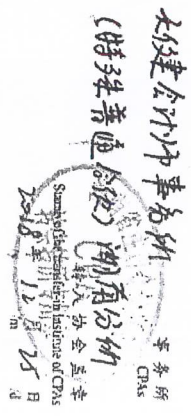 大健会计师事务所
(特殊普通合伙) 湖南分所
事务所
CPAs
转入协会盖章
Stamp of the transfer-in Institute of CPAs
2018年12月25日
m d